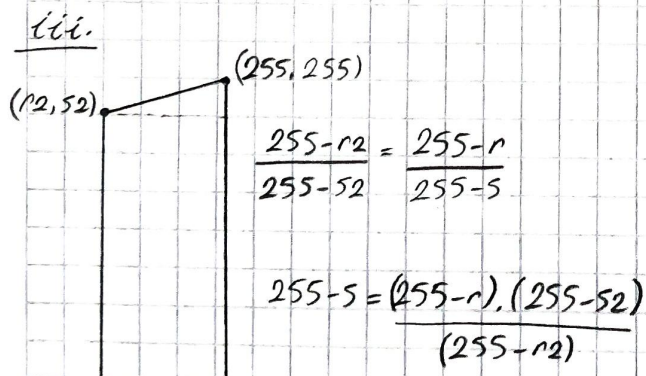 iii.
(255, 255)
(r2, s2)
255-r2 = 255-r
255-s2 255-s
255-s = (255-r).(255-s2)
(255-r2)